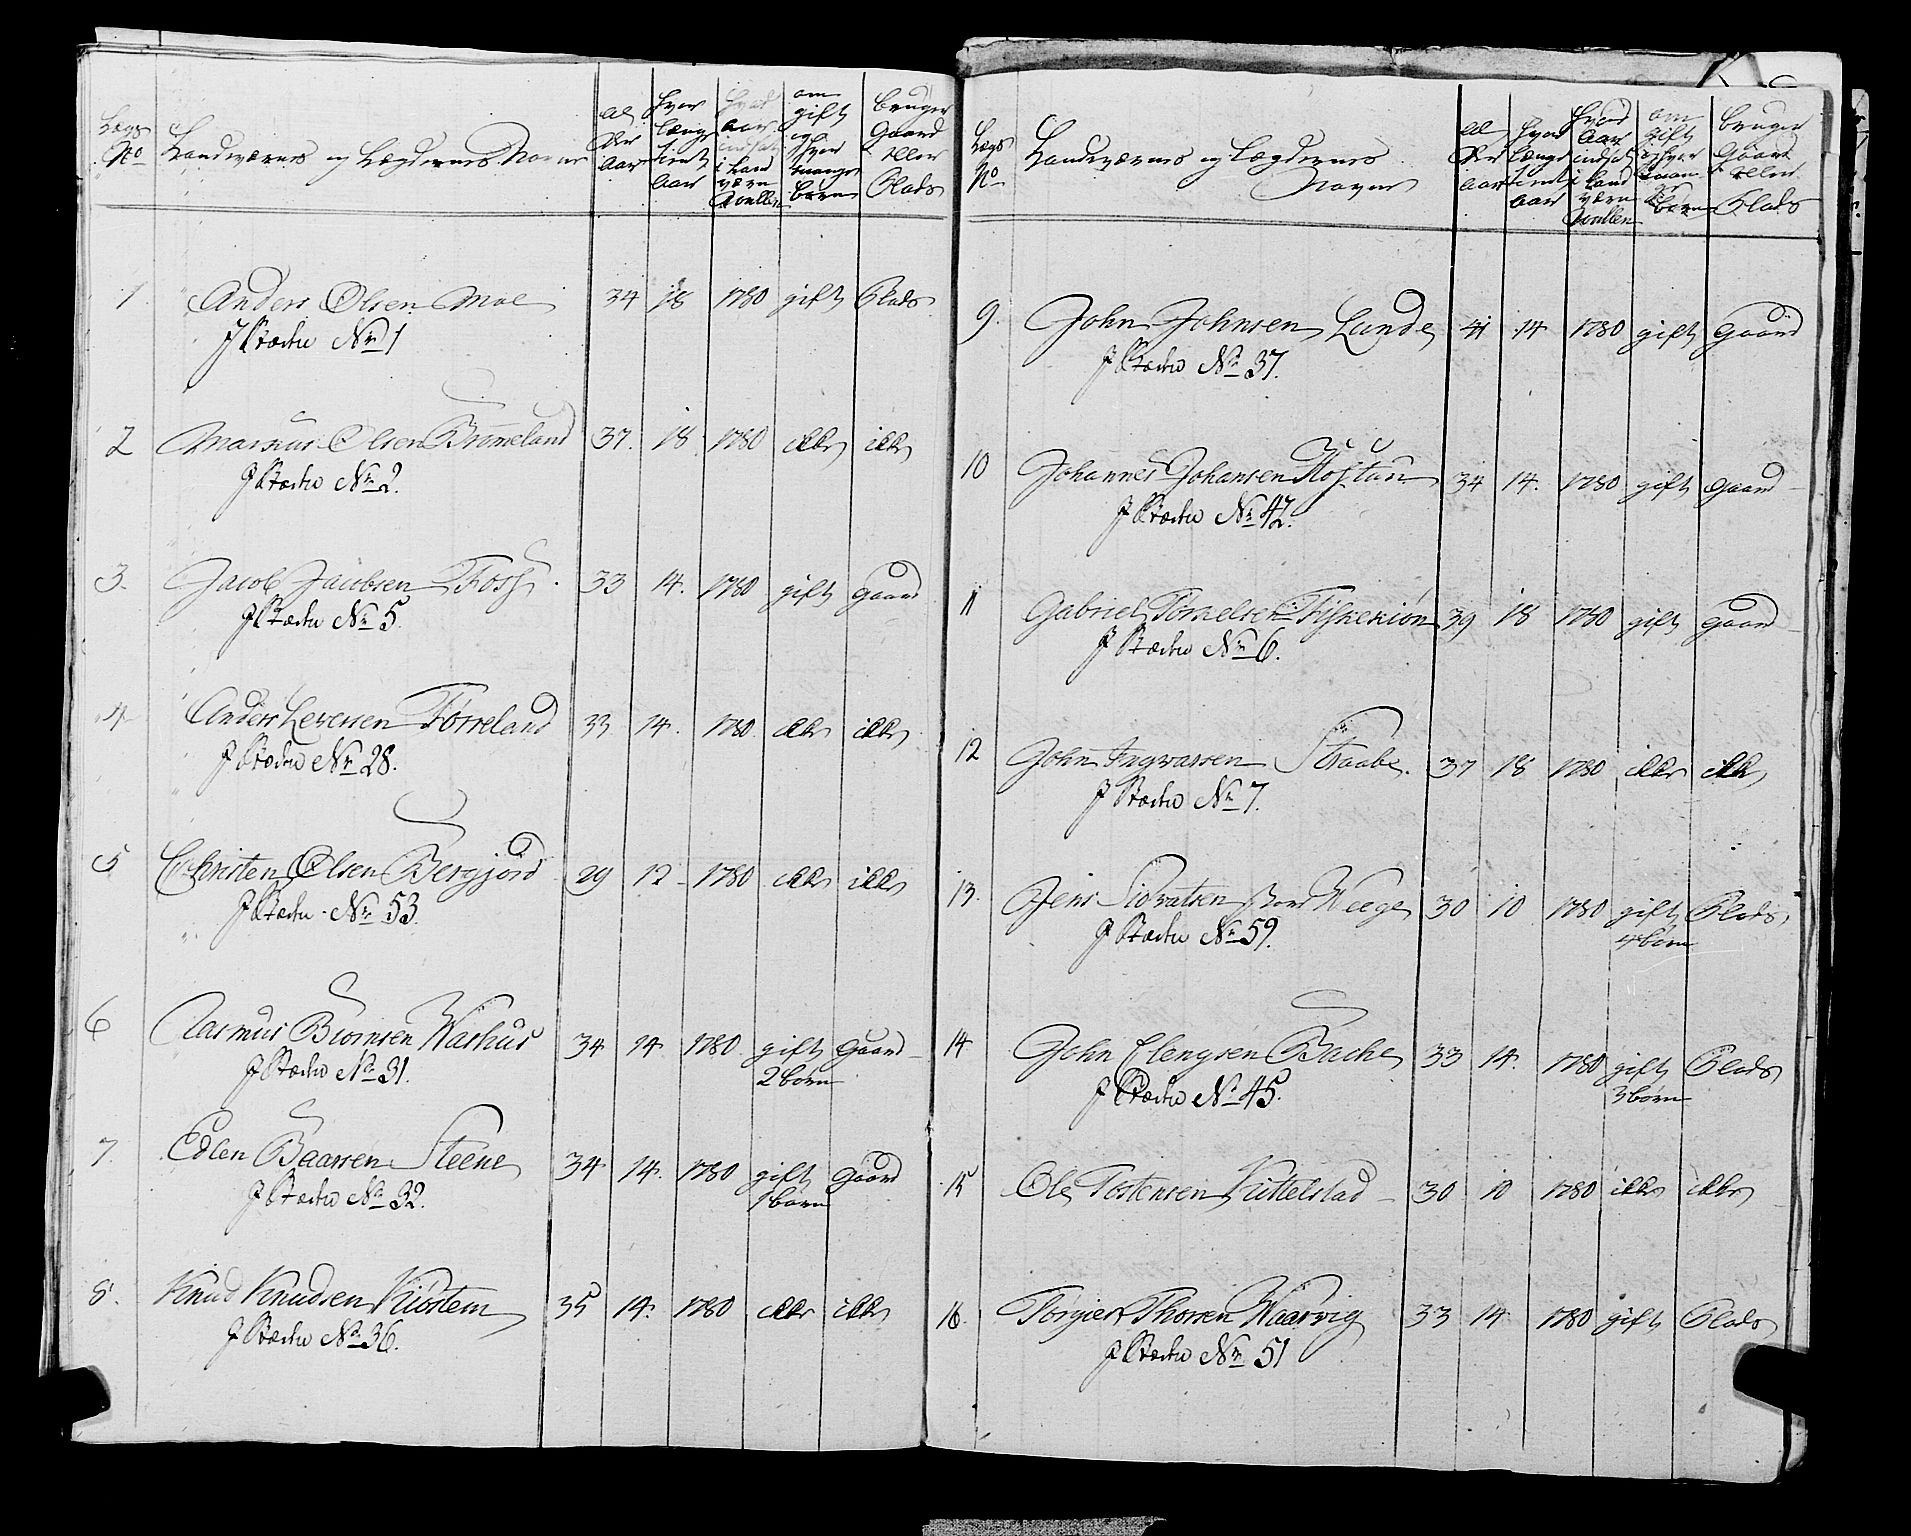 Lægs No
Landværns og Lægdernes Navne
Alder Aar
hvor længe tient Aar
hvad Aar indsat i Land værn Rullen
om gift og hvor mange børn
bruger Gaard eller Plads
1 Anders Olsen Moe 34 18 1780 gift Plads
No 1
2 Markus Olsen Brømeland 37. 18 1780 ikke ikke
No 2.
3. Jacob Jacobsen Foss 33 14. 1780 gift gaard
No 5.
4 Anders Leversen Tørreland 33 14. 1780 ikke ikke
No 28.
5 Christen Olsen Bergjord 29 12 1780 ikke ikke
No 53.
6 Rasmus Biørnsen Washus 34 14 1780 gift gaard
No 31. 2 børn
7. Edlen Baarsen Steene 34 14. 1780 gift gaard
No 32. 1 børn
8. Knud Knudsen Kiøstem 35 14. 1780 ikke ikke
No 36.
Lægs No
Landværns og Lægdernes Navne
Alder Aar
hvad længe tient Aar
hvad Aar indsat i Land værn Rullen
om gift og hvor mange børn
bruger Gaard eller Plads
9. John Johnsen Lunde 41 14 1780 gift gaard
No 37.
10 Johannes Johansen 34 14. 1780 gift gaard
No 42.
11 Gabriel Tørrelsen Fiskekiøn 39 18 1780 gift gaard
No 6.
12 John Ingwarsen Straabe. 37 18 1780 ikke ikke
No 7.
13. Jens Siovatsen Weege 30 10 1780 gift Plads
No 59. 4 børn
14 John Elengsen Bache 33 14. 1780 gift Plads
No 45. 3 børn
15 Ole Tostensen Kittelstad 30 10 1780 ikke ikke
16. Torgier Thorsen Waarvig 33 14 1780 gift Plads
No 51